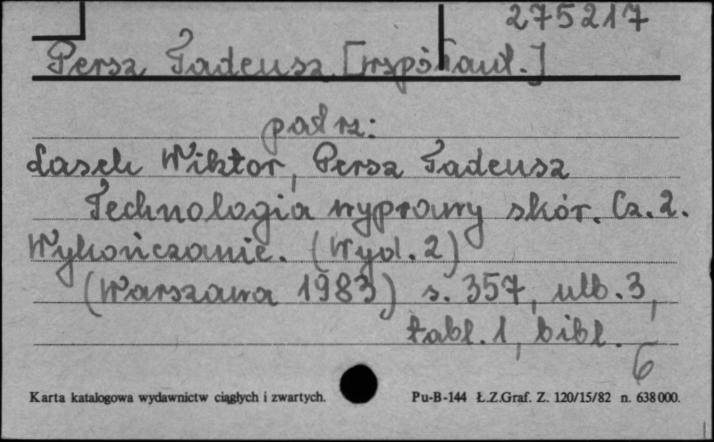 275217
Persz Tadeusz [współaut.]
patrz:
Lasek Wiktor, Persz Tadeusz
Technologia wyprawy skór. Cz. 2.
Wykończanie. (Wyd. 2)
(Warszawa 1983) s. 357, ulb. 3,
tabl. 1, bibl.
6
Karta katalogowa wydawnictw ciągłych i zwartych. Pu-B-144 Ł.Z.Graf. Z. 120/15/82 n. 638000.